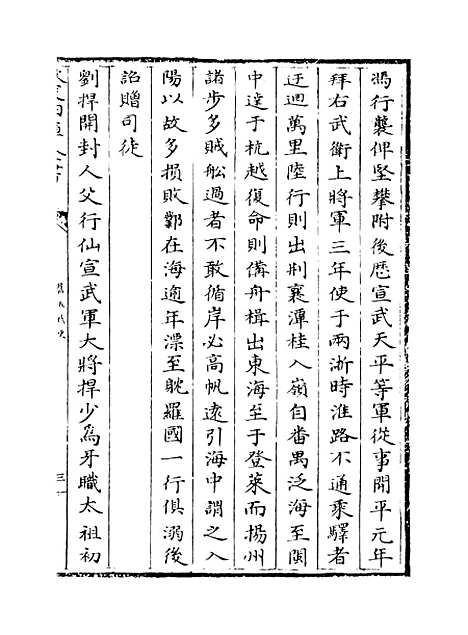 馮行襲俾堅攀附後歷宣武天平等軍從事開平元年
拜右武衛上將軍三年使于兩浙時淮路不通乘驛者
迂迴萬里陸行則出荆襄潭桂入嶺自番禺泛海至閩
中達于杭越復命則備舟楫出東海至于登萊而揚州
諸步多賊船過者不敢循岸必高帆遠引海中謂之入
陽以故多損敗鄴在海逾年漂至躭羅國一行俱溺後
詔贈司徒
劉捍開封人父行仙宣武軍大將捍少為牙職太祖初
舊五代史